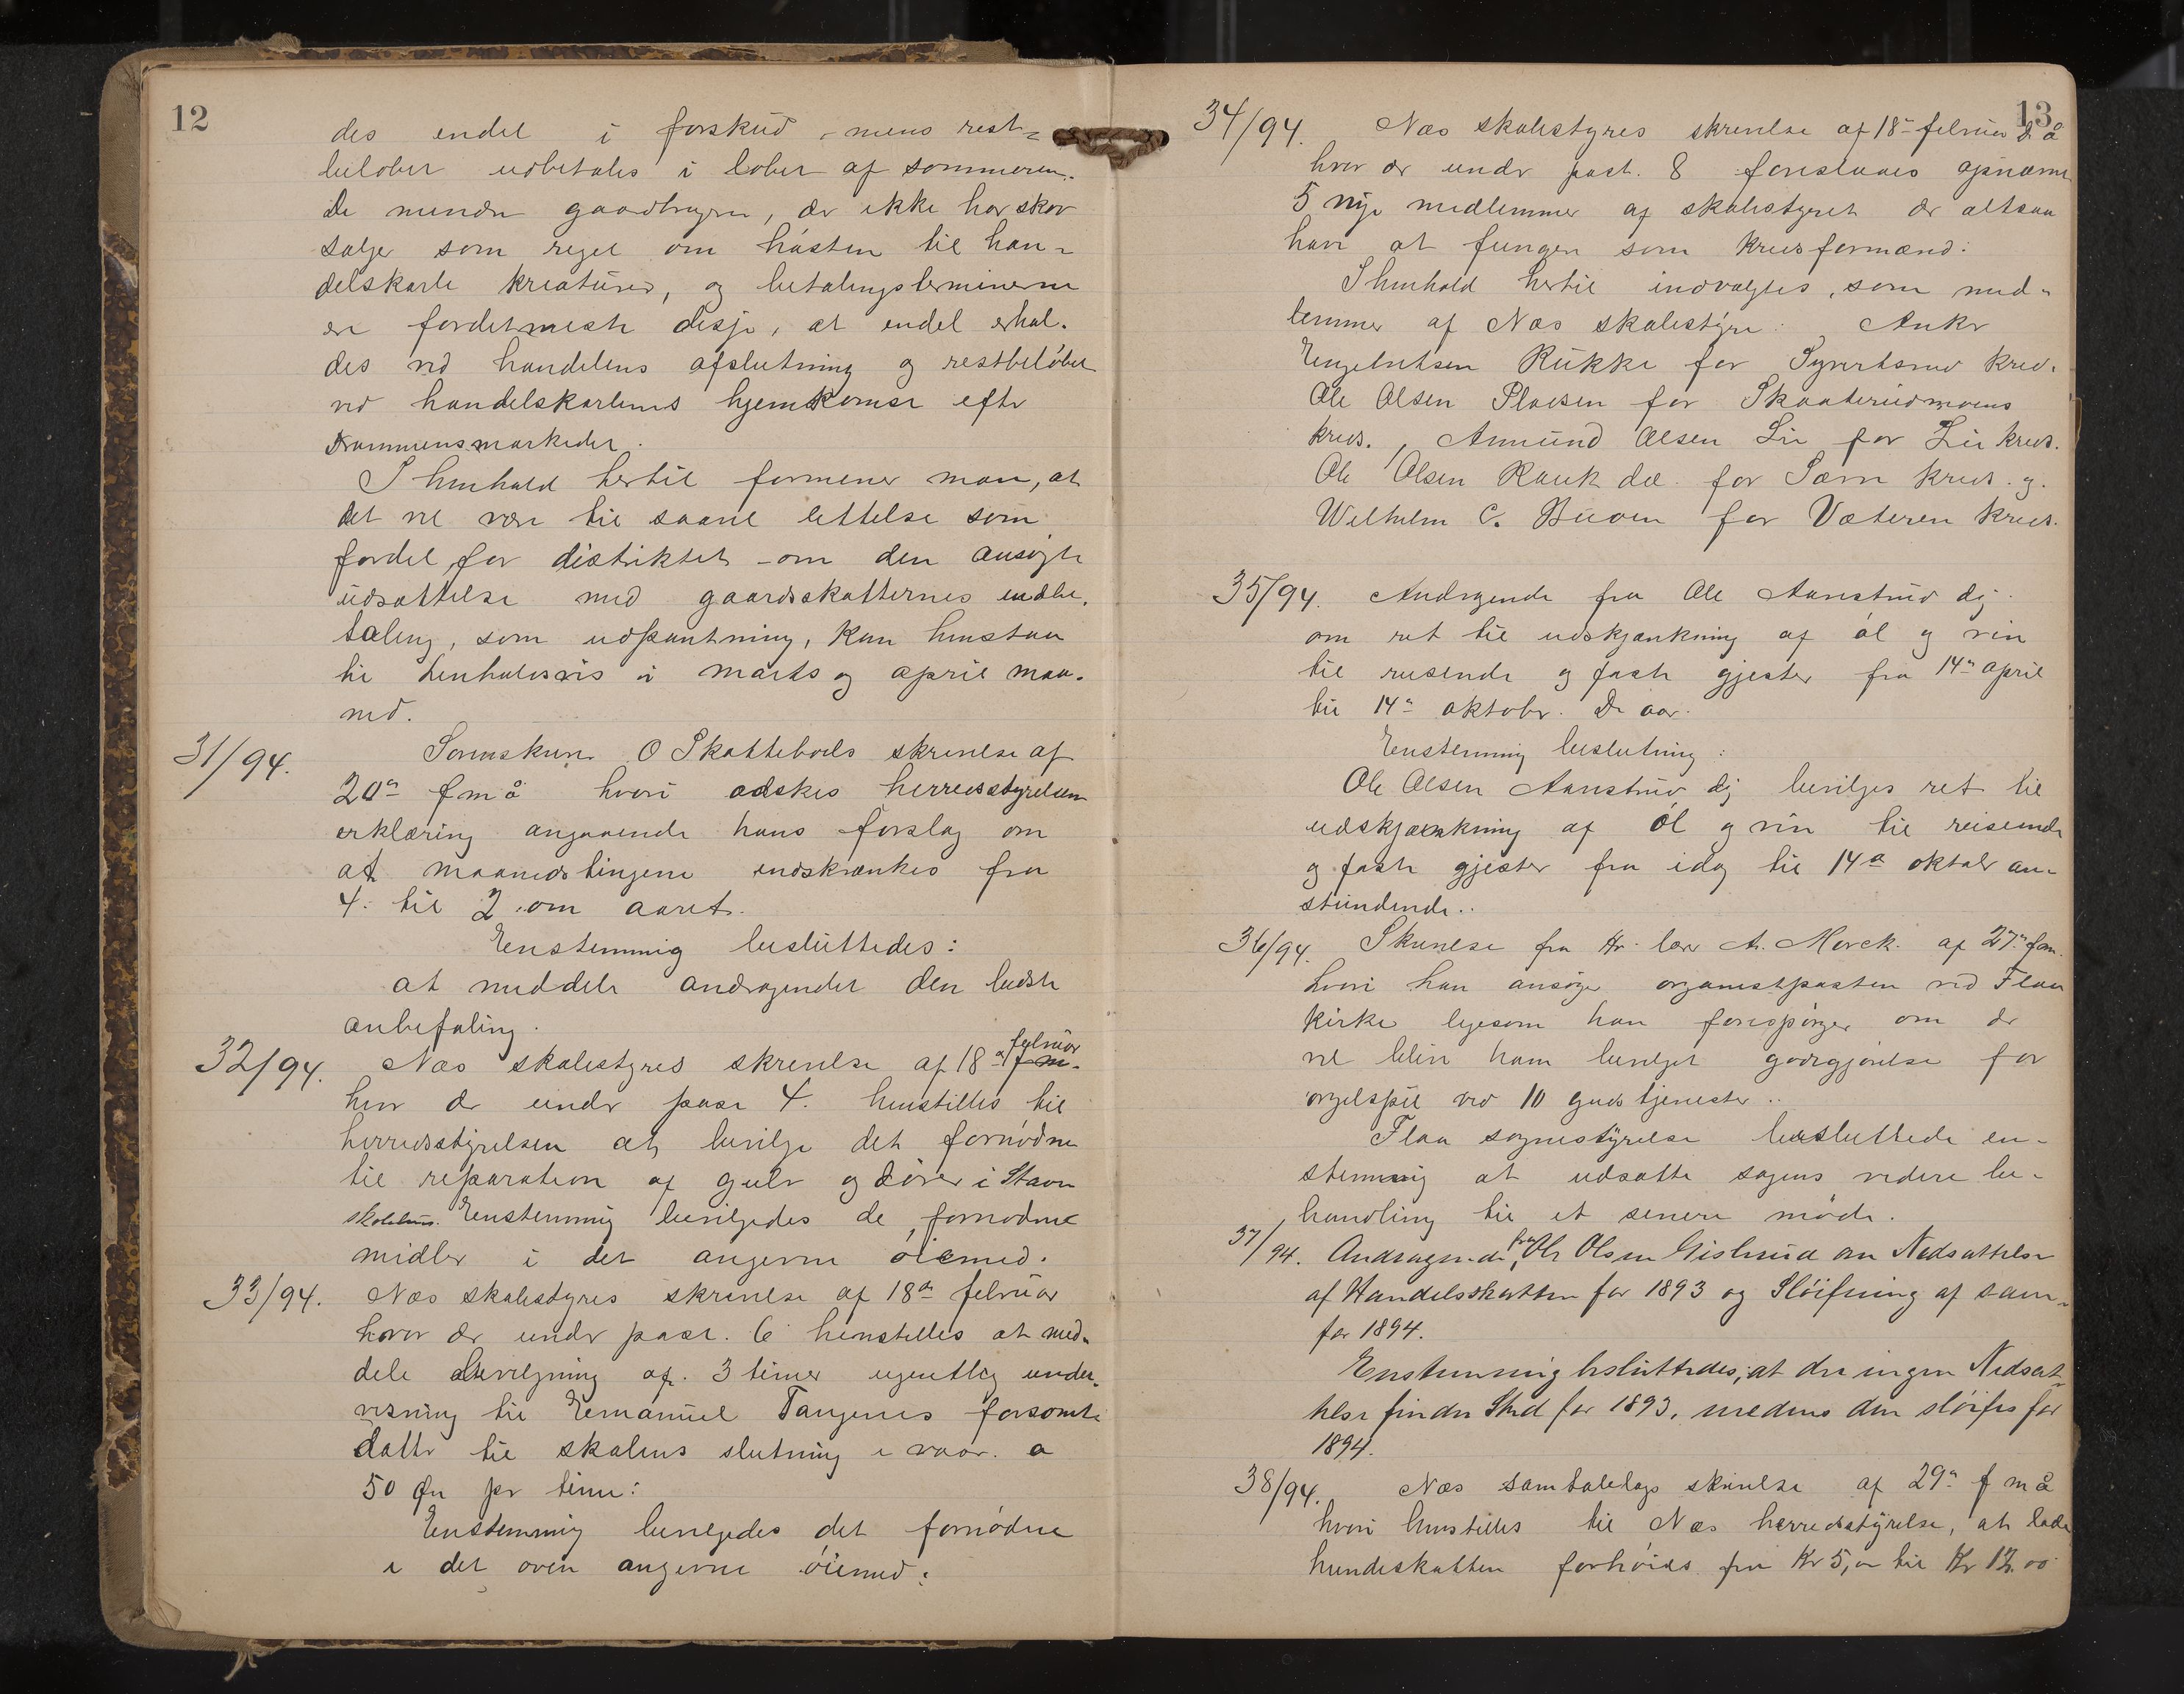 12
des endel i forskud, mens rest=
beløbet udbetales i løbet af sommeren.
De mindre gaardbrugere, der ikke har skov
sælge som regel om høsten til han-
delskarle kreaturer, og betalingsterminerne
er fordetmeste disse, at endel erhol-
des ved handelens afslutning og restbeløbet
ved handelskarlenes hjemkomst efter
Drammensmarkedet.
I henhold hertil formener man, at
det vil være til saavel lettelse som
fordel for distriktet om den ansøgte
udsættelse med gaardsskatternes indbe-
taling, som udpantning, kan henstaa
til henholdsvis i marts og april maa-
ned.
31/94. Sorenskriver O Skattebøls skrivelse af
20de f m å hvori ædskes herredsstyrelsen
erklæring angaaende hans forslag om
at maanedstingene indskrænkes fra
4 til 2 om aaret.
Enstemmig besluttedes:
at meddele andragendet den bedste
anbefaling.
32/94. Næs skolestyres skrivelse af 18de f m februar
hvor der under post 4. henstilles til
herredsstyrelsen at bevilge det fornødne
til reparation af gulv og dører i Stavn
skolehus. Enstemmig bevilgedes de fornødne
midler i det angivne øiemed.
33/94. Næs skolestyres skrivelse af 18de februar
hvor der under post. 6 henstilles at med-
dele bevilgning af 3 timer ugentlig under-
visning til Emanuel Tangenes forsømte
datter til skolens slutning i vaar. a
50 Øre pr time:
Enstemmig bevilgedes det fornødne
i det oven angivne øiemed:
13
34/94. Næs skolestyres skrivelse af 18de februar d. å
hvor der under post. 8 foreslaaes opnævnt
5 nye medlemmer af skolestyret der altsaa
have at fungere som kredsformænd:
I henhold hertil indvalgtes, som med-
lemmer af Næs skolestyre: Anker
Engebretsen Rukke for Syvertsrud kreds.
Ole Olsen Plassen for Skaaterudmoens
kreds., Amund Olsen Lie for Lie kreds.
Ole Olsen Rauk dæ. for Særn kreds. og
Wilhelm C. Buoen for Væteren kreds.
35/94. Andragende fra Ole Aanstrud dy.
om ret til udskjænkning af øl og vin
til reisende og faste gjester fra 14de april
til 14de oktober. D. aar.
Enstemmig beslutning:
Ole Olsen Aanstrud dy bevilges ret til
udskjænkning af øl og vin til reisende
og faste gjester fra idag til 14de oktober an-
stundende..
36/94. Skrivelse fra Hr. lærer A. Morck. af 27de f m.
hvori han ansøger organistposten ved Flaa
kirke ligesom han forespørger om der
vil blive ham bevilget godtgjørelse for
orgelspil ved 10 gudstjenester..
Flaa sognestyrelse besluttede en-
stemmig at udsætte sagens videre be-
handling til et senere møde.
37/94. Andragende fra Ole Olsen Gislerud om Nedsættelse
af Handelsskatten for 1893 og Sløifning af sam-
for 1894.
Enstemmig besluttedes, at der ingen Nedsæt-
telse finder Sted for 1893, medens den sløifes for
1894.
38/94. Næs samtalelags skrivelse af 29de f m å
hvori henstilles til Næs herredsstyrelse, at lade
hundeskatten forhøies fra Kr 5,00 til Kr 12.00